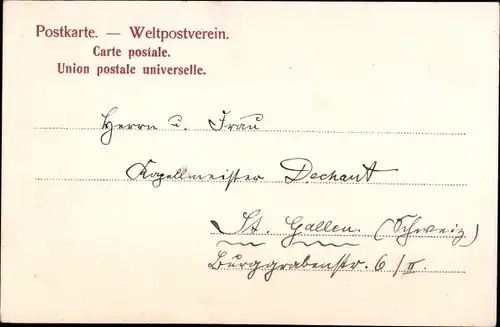 Postkarte. — Weltpostverein.
Carte postale.
Union postale universelle.
Herrn u. Frau
Kapellmeister Dechant
St. Gallen. (Schweiz)
Burggrabenstr. 6/II.